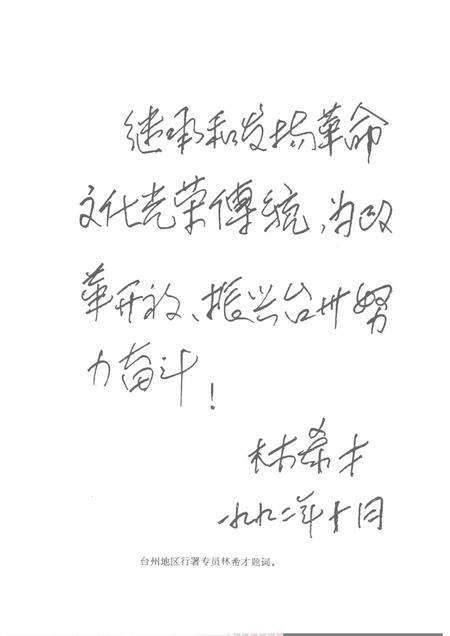 继承和发扬革命
文化光荣傳統，为改
革开放、振兴台州努
力奋斗！
林希才
一九九二年十月
台州地区行署专员林希才题词。